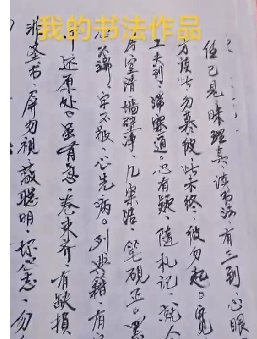 我的书法作品
但已见 昧理真 读书法 有三到 心眼
方读此 勿慕彼 此未终 彼勿起 宽
工夫到 滞塞通 心有疑 随札记 就人
房室清 墙壁净 几案洁 笔砚正 墨
字不敬 心先病 列典籍 有
还原处 虽有急 卷束齐 有缺损
非圣书 屏勿视 蔽聪明 坏心志 勿